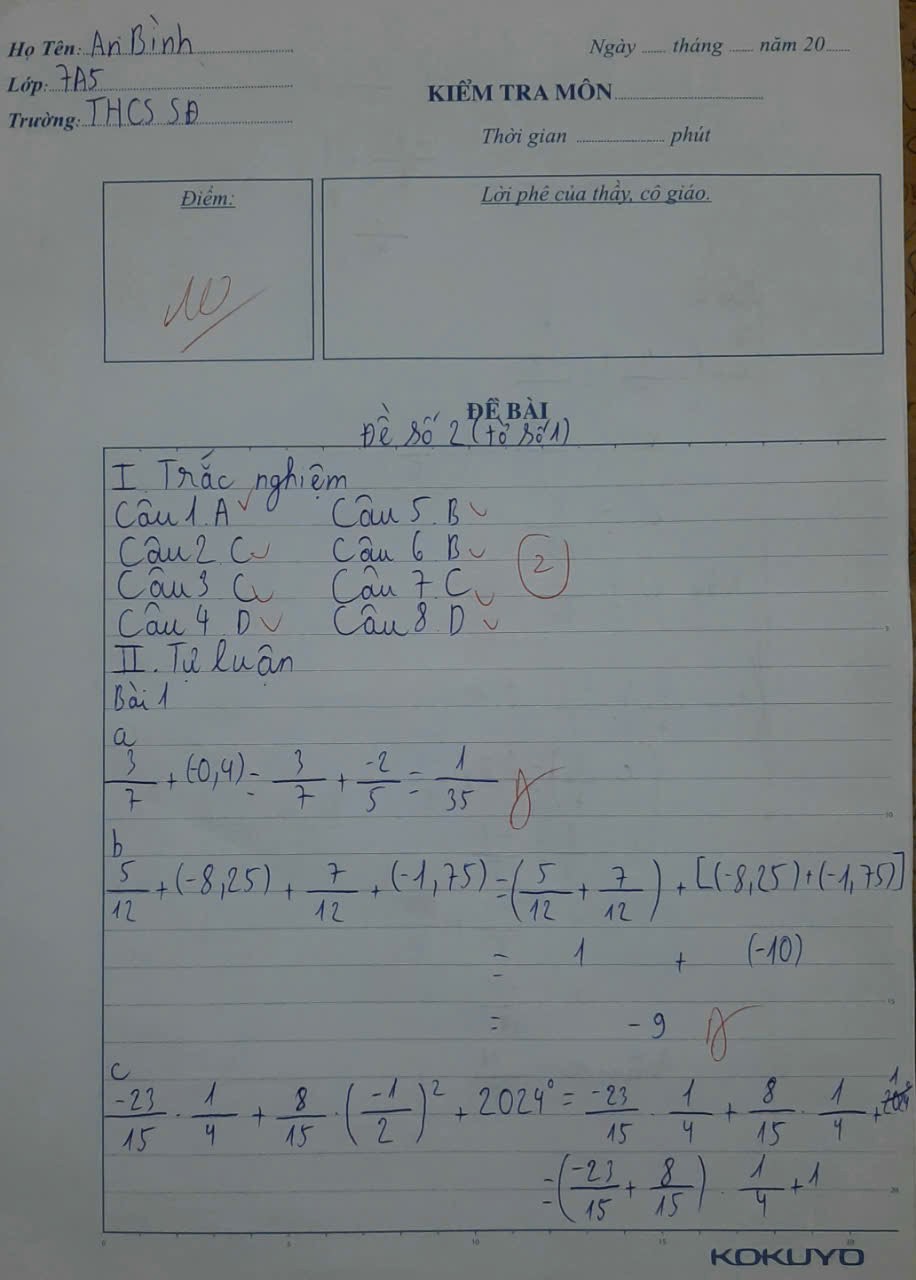 Họ Tên: An Bình
Ngày ...... tháng ...... năm 20......
Lớp: 7A5
KIỂM TRA MÔN
Trường: THCS SĐ
Thời gian ...... phút
Điểm:
Lời phê của thầy, cô giáo.
10
ĐỀ BÀI
Đề số 2 (tờ số 1)
I. Trắc nghiệm
Câu 1. A Câu 5. B
Câu 2 C Câu 6 B
2
Câu 3 C Câu 7 C
Câu 4 D Câu 8 D
II. Tự luận
Bài 1
a
3/7 + (-0,4) = 3/7 + -2/5 = 1/35
b
5/12 + (-8,25) + 7/12 + (-1,75) = (5/12 + 7/12) + [(-8,25) + (-1,75)]
= 1 + (-10)
= -9
c
-23/15 . 1/4 + 8/15 . (-1/2)² + 2024⁰ = -23/15 . 1/4 + 8/15 . 1/4 + 1
= (-23/15 + 8/15) . 1/4 + 1
KOKUYO